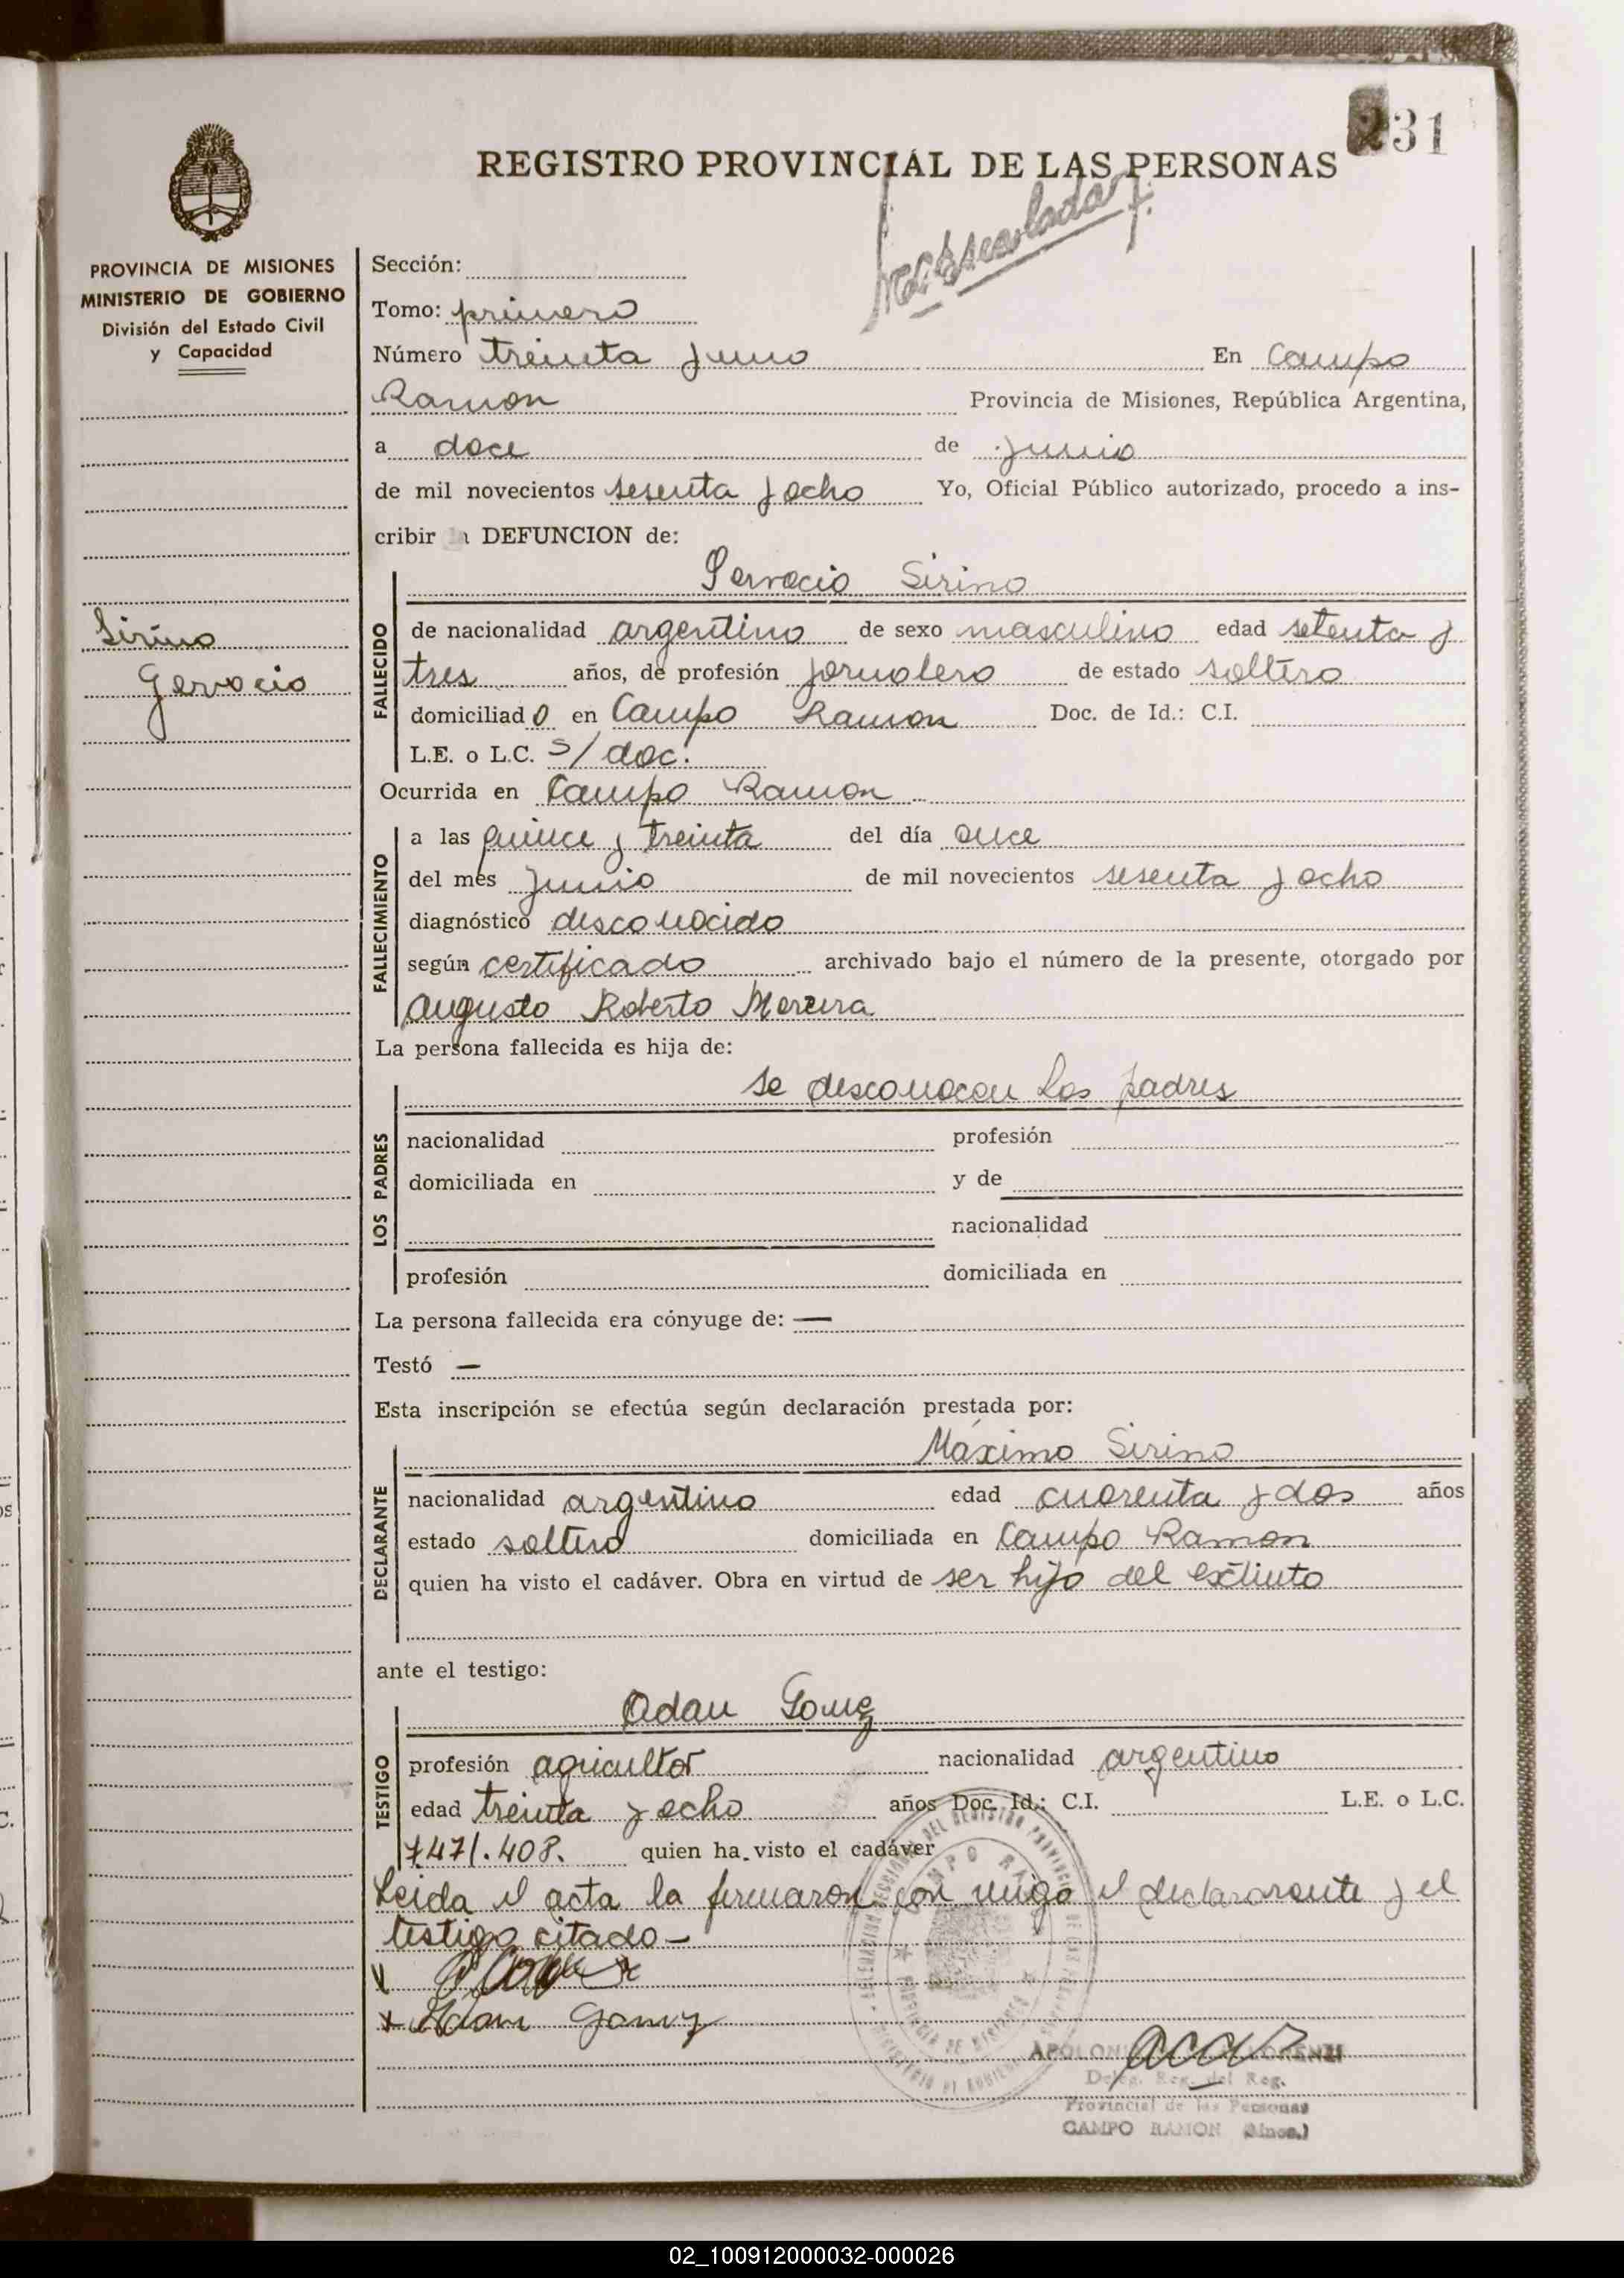 31
REGISTRO PROVINCIAL DE LAS PERSONAS
PROVINCIA DE MISIONES
MINISTERIO DE GOBIERNO
División del Estado Civil
y Capacidad
Sirino
Gervacio
Sección:
Tomo: primero
Número treinta y uno En Campo
Ramon Provincia de Misiones, República Argentina,
a doce de junio
de mil novecientos sesenta y ocho Yo, Oficial Público autorizado, procedo a ins-
cribir la DEFUNCION de:
Gervacio Sirino
FALLECIDO
de nacionalidad argentino de sexo masculino edad setenta y
tres años, de profesión jornalero de estado soltero
domiciliado en Campo Ramon Doc. de Id.: C.I.
L.E. o L.C. s/doc.
Ocurrida en Campo Ramon
FALLECIMIENTO
a las quince y treinta del día once
del mes junio de mil novecientos sesenta y ocho
diagnóstico desconocido
según certificado archivado bajo el número de la presente, otorgado por
Augusto Roberto Mereira
La persona fallecida es hija de:
se desconocen los padres
LOS PADRES
nacionalidad profesión
domiciliada en y de
nacionalidad
profesión domiciliada en
La persona fallecida era cónyuge de: —
Testó —
Esta inscripción se efectúa según declaración prestada por:
Máximo Sirino
DECLARANTE
nacionalidad argentino edad cuarenta y dos años
estado soltero domiciliada en Campo Ramon
quien ha visto el cadáver. Obra en virtud de ser hijo del extinto
ante el testigo:
Adan Gomez
TESTIGO
profesión agricultor nacionalidad argentino
edad treinta y ocho años Doc. Id.: C.I. L.E. o L.C.
7471.408. quien ha visto el cadáver
Leida el acta la firmaron con migo el declararante y el
testigo citado—
x Adan Gomez
Deleg. Reg. del Reg.
Provincial de las Personas
CAMPO RAMON (Mnes.)
02_100912000032-000026